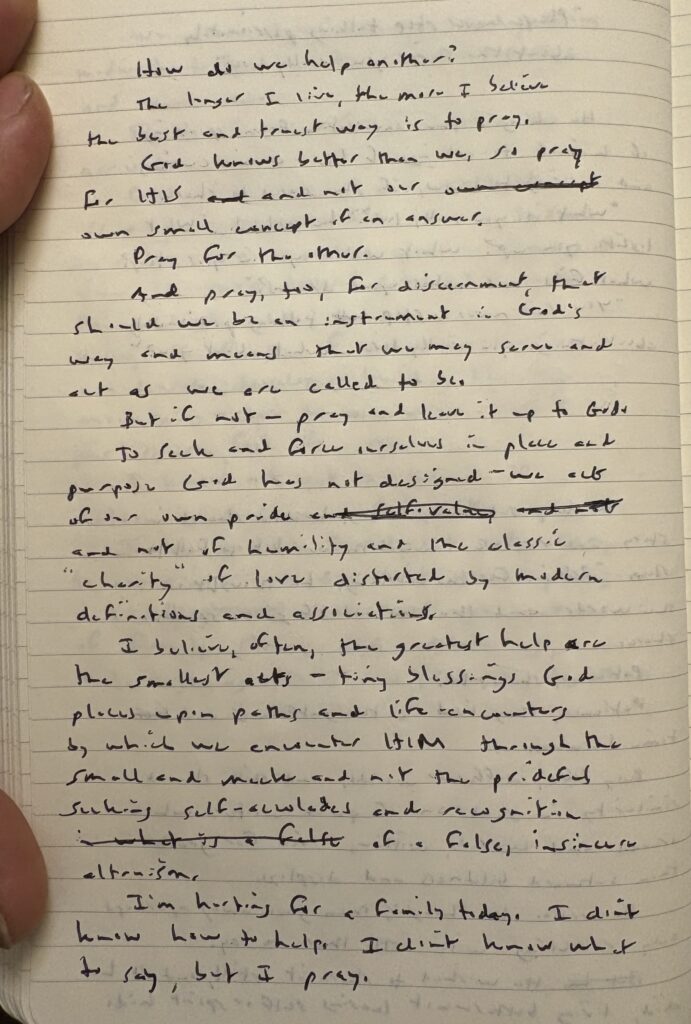 How do we help another?
The longer I live, the more I believe
the best and truest way is to pray.
God knows better than we, so pray
for HIS and and not our own concept
own small concept of an answer.
Pray for the other.
And pray, too, for discernment, that
should we be an instrument in God's
way and means that we may serve and
act as we are called to be.
But if not – pray and leave it up to God.
To seek and force ourselves in place and
purpose God has not designed – we act
of our own pride and self-value, and not
and not of humility and the classic
"charity" of love distorted by modern
definitions and associations.
I believe, often, the greatest help are
the smallest acts – tiny blessings God
places upon paths and life-encounters
by which we encounter HIM through the
small and meek and not the prideful
seeking self-accolades and recognition
in what is a false of a false, insincere
altruism.
I'm hurting for a family today. I don't
know how to help. I don't know what
to say, but I pray.